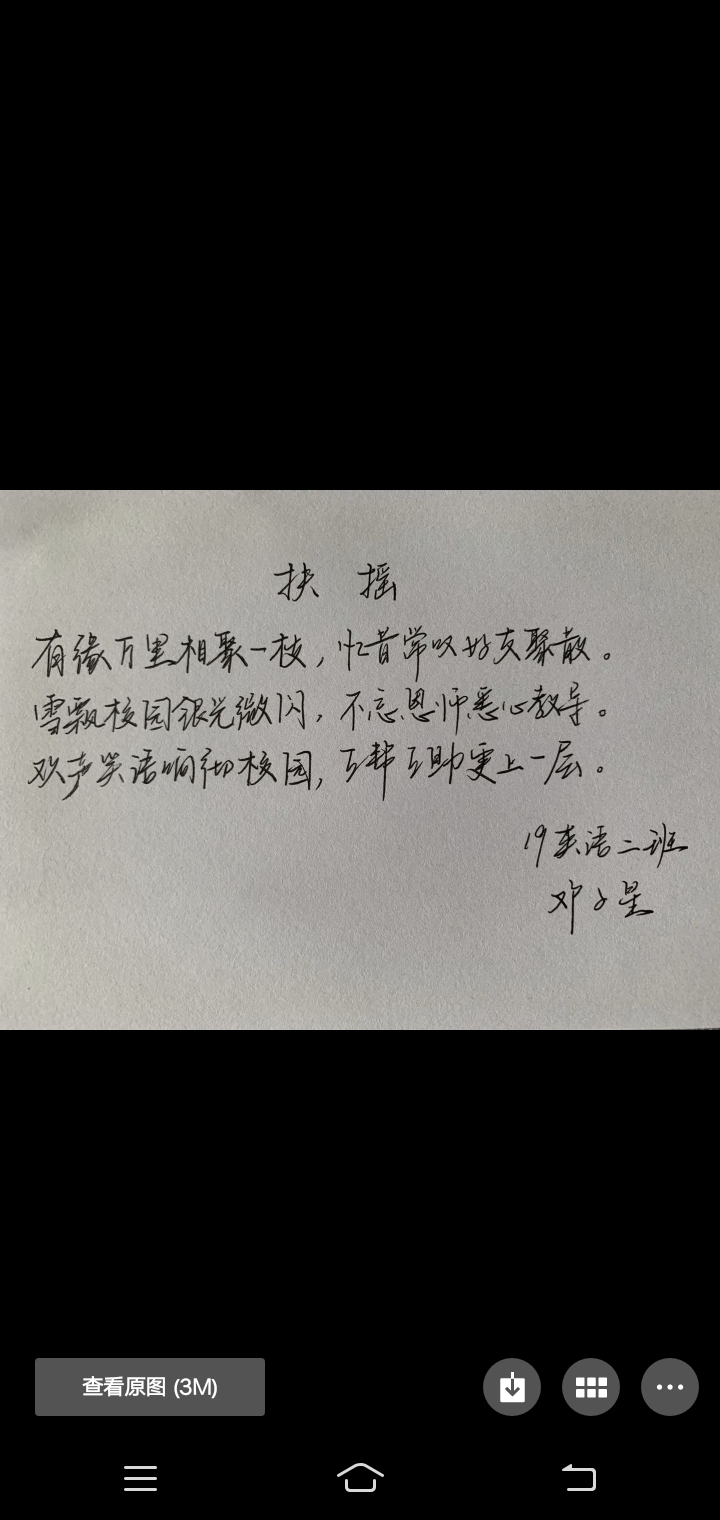 扶 摇
有缘万里相聚一枝，忆昔常叹好友聚散。
雪飘校园银光微闪，不忘恩师悉心教导。
欢声笑语响彻校园，互帮互助更上一层。
19英语二班
邓子星
查看原图 (3M)